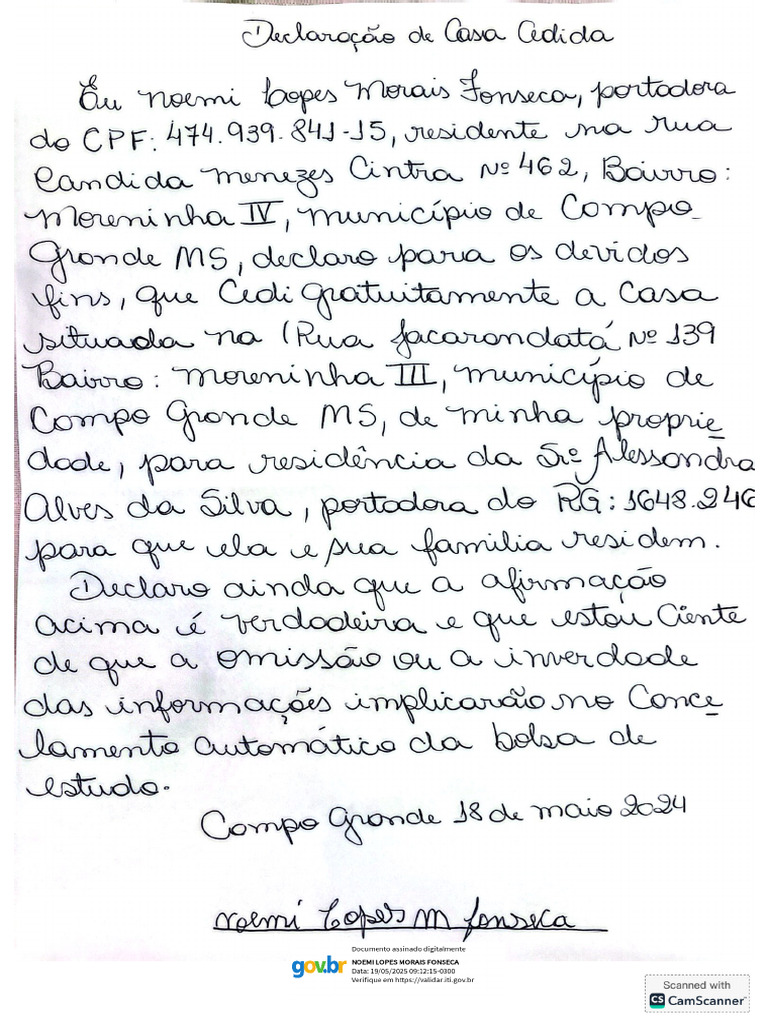 Declaração de Casa Cedida
Eu Noemi Lopes Morais Fonseca, portadora
do CPF: 474.939.841-15, residente na rua
Candida Menezes Cintra Nº 462, Bairro:
Moreninha IV, município de Campo
Grande MS, declaro para os devidos
fins, que Cedi gratuitamente a Casa
situada na Rua Jacarandatá Nº 139
Bairro: Moreninha III, município de
Campo Grande MS, de minha proprie
dade, para residência da Srª Alessandra
Alves da Silva, portadora do RG: 1648.246
para que ela e sua familia residem.
Declaro ainda que a afirmação
acima é verdadeira e que estou Ciente
de que a omissão ou a inverdade
das informações implicarão no Cance
lamento automático da bolsa de
estudo.
Campo Grande 18 de maio 2024
Noemi Lopes M Fonseca
Documento assinado digitalmente
gov.br
NOEMI LOPES MORAIS FONSECA
Data: 19/05/2025 09:12:15-0300
Verifique em https://validar.iti.gov.br
Scanned with
CS CamScanner